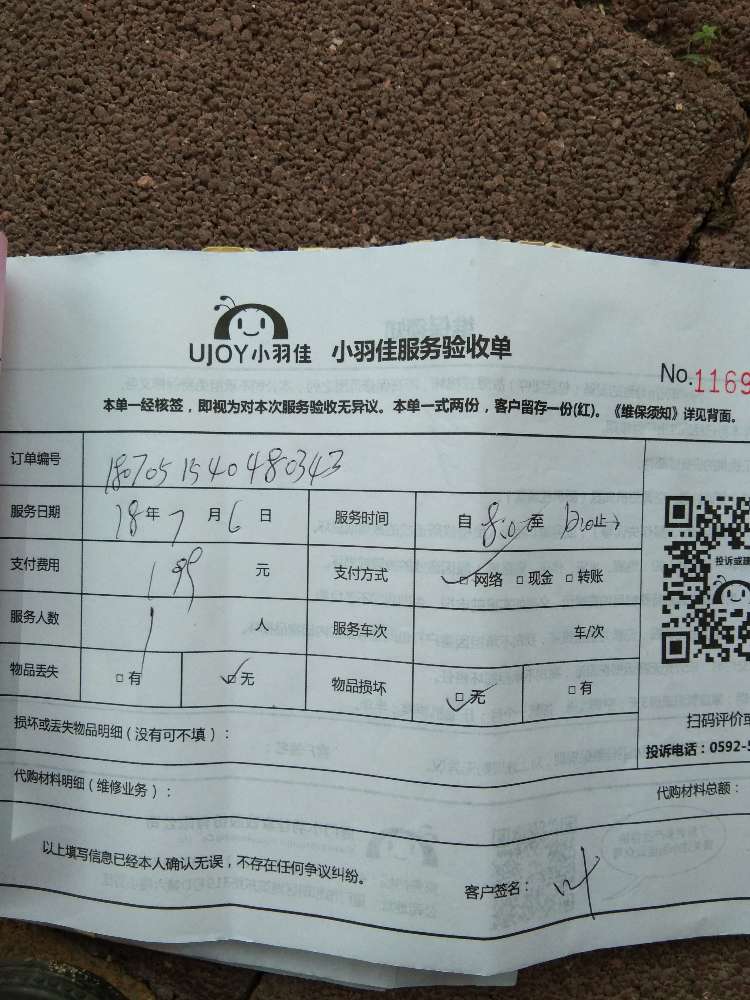 UJOY小羽佳 小羽佳服务验收单
No.1169
本单一经核签，即视为对本次服务验收无异议。本单一式两份，客户留存一份(红)。《维保须知》详见背面。
订单编号 180705 1540480343
服务日期 18年7月6日 服务时间 自8:00至12:00止
支付费用 199元 支付方式 ☑网络 □现金 □转账
服务人数 1人 服务车次 车/次
物品丢失 □有 ☑无 物品损坏 ☑无 □有
投诉或建
扫码评价或
损坏或丢失物品明细（没有可不填）：
投诉电话：0592-5
代购材料明细（维修业务）： 代购材料总额：
以上填写信息已经本人确认无误，不存在任何争议纠纷。 客户签名：叶